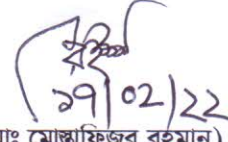 ১৭/০২/২২
মোঃ মোস্তাফিজুর রহমান)